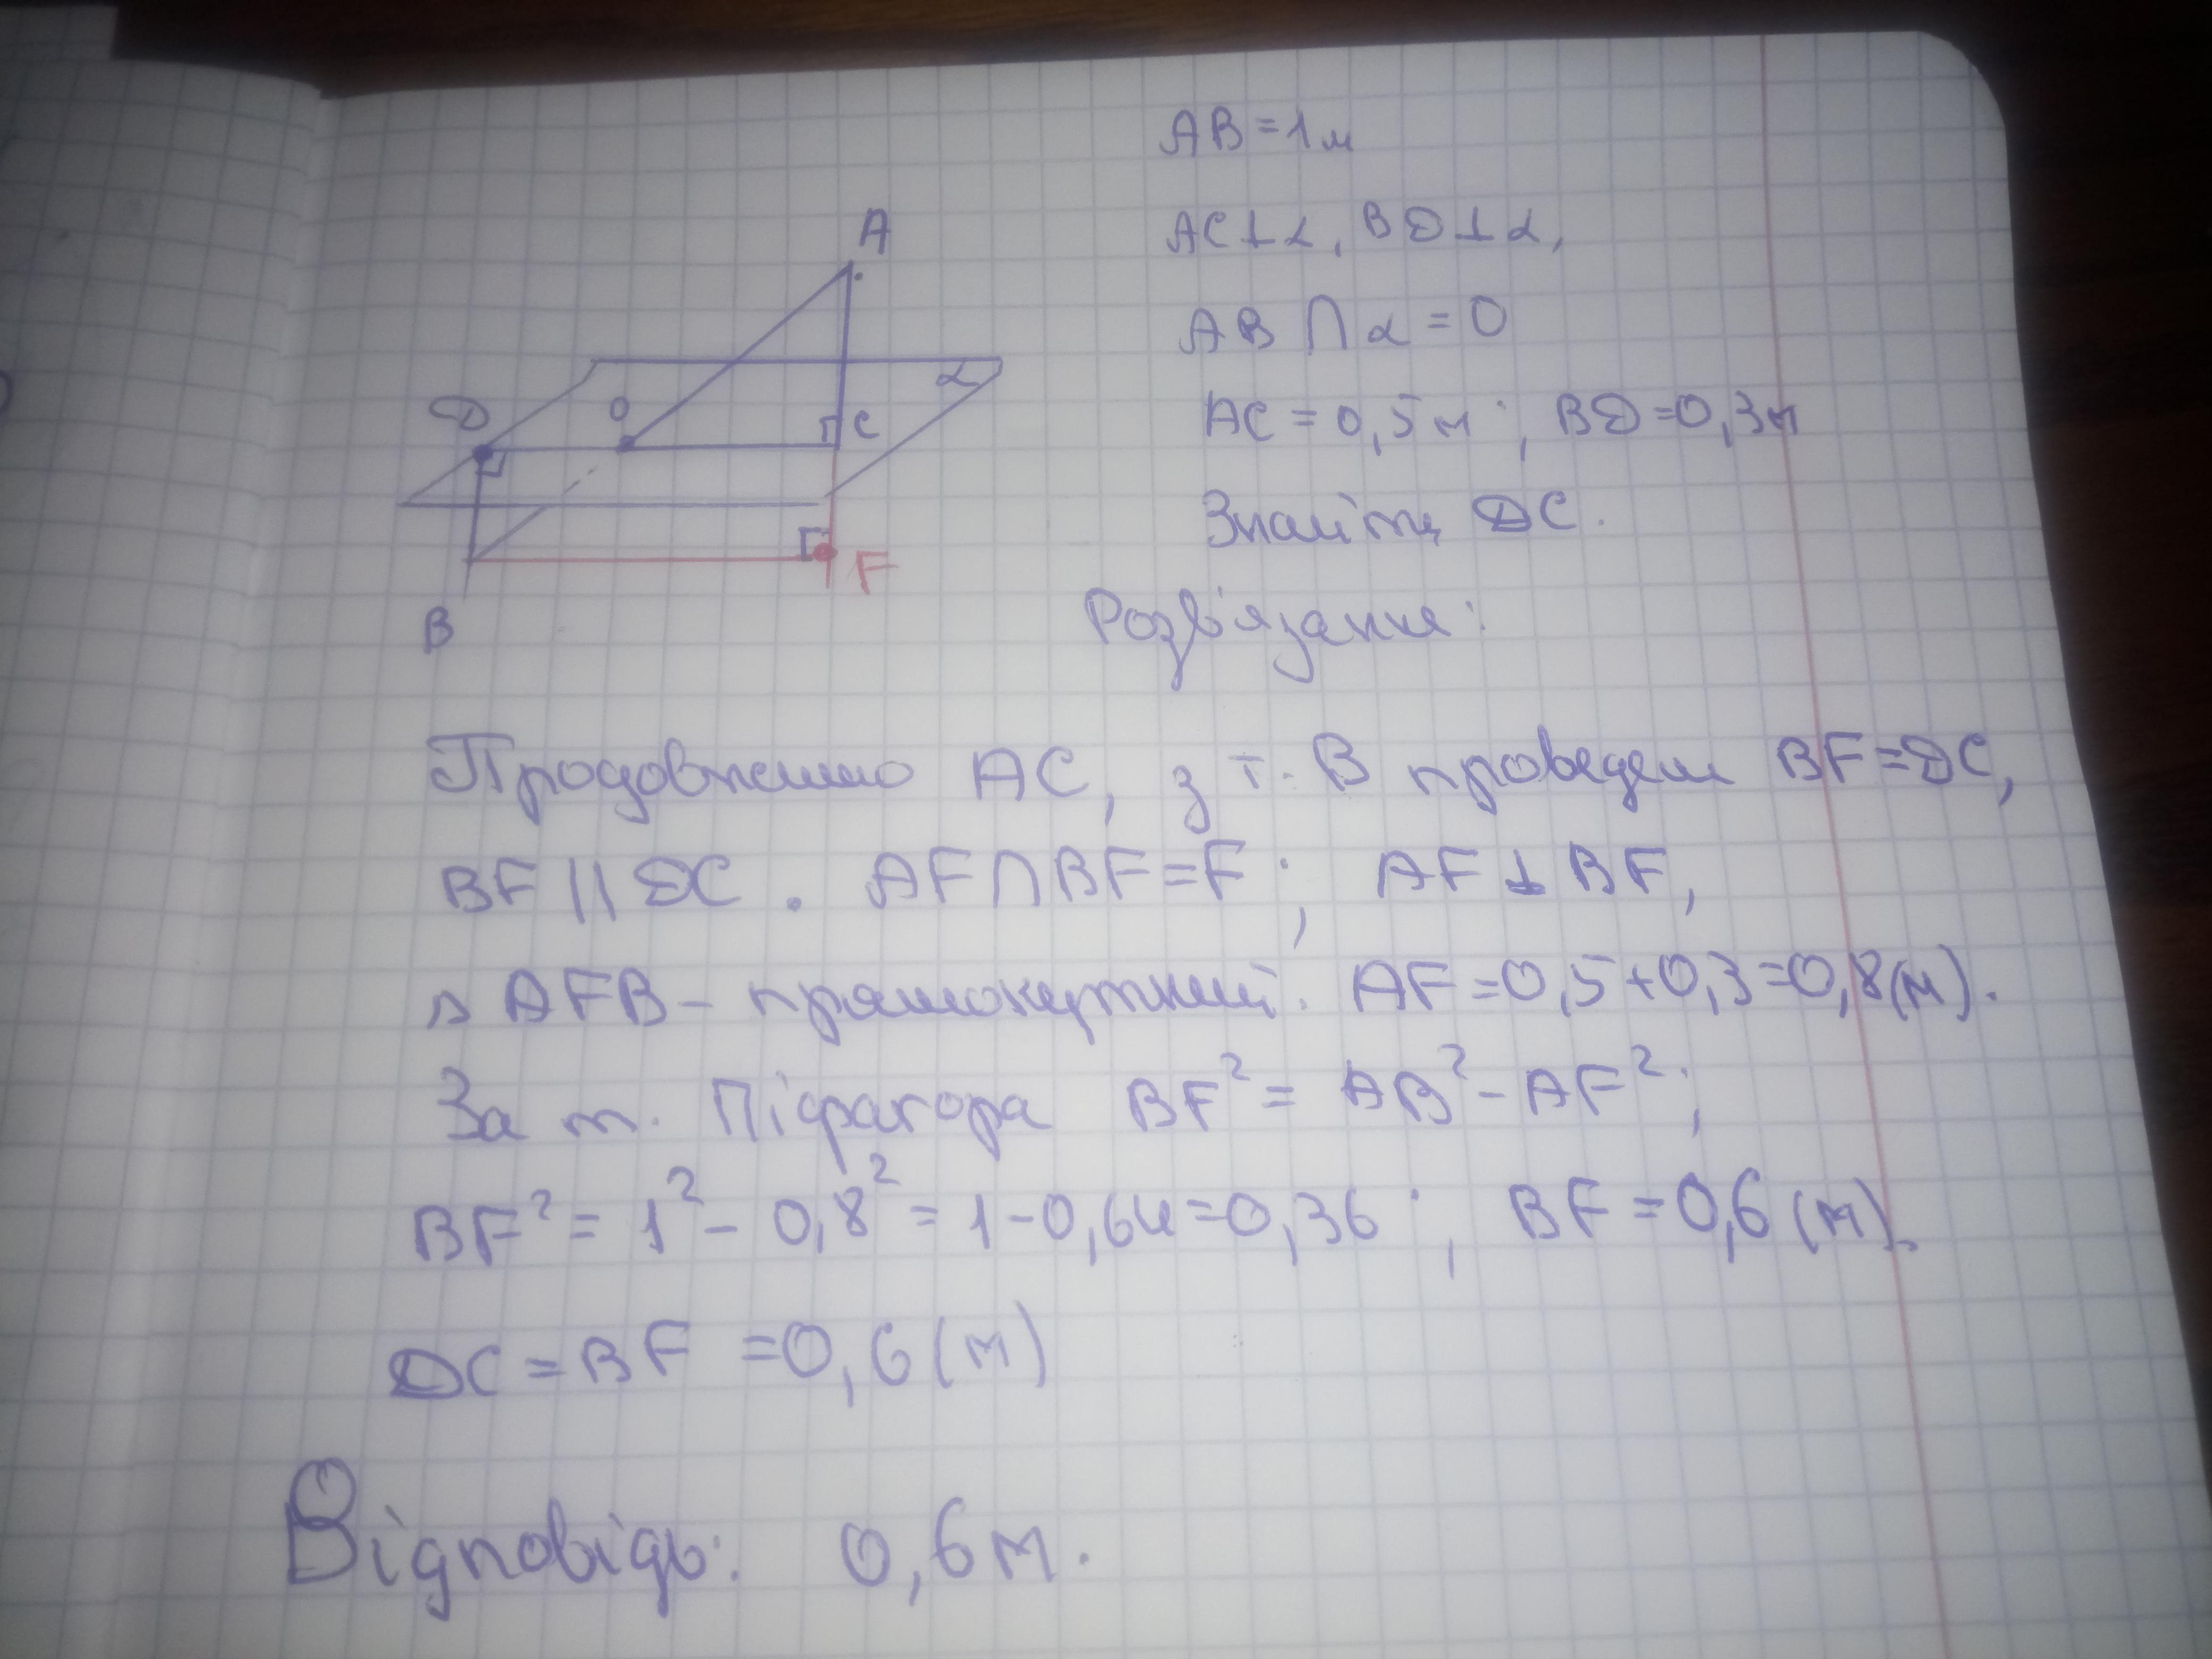 AB = 1 м
AC ⊥ α, BD ⊥ α,
AB ∩ α = O
AC = 0,5 м ; BD = 0,3 м
Знайти DC.
Розв'язання:
A
α
D
O
C
F
B
Продовжимо AC, з т. B проведем BF = DC,
BF || DC. AF ∩ BF = F ; AF ⊥ BF,
Δ AFB - прямокутний. AF = 0,5 + 0,3 = 0,8 (м).
За т. Піфагора BF² = AB² - AF² ;
BF² = 1² - 0,8² = 1 - 0,64 = 0,36 ; BF = 0,6 (м).
DC = BF = 0,6 (м)
Відповідь: 0,6 м.